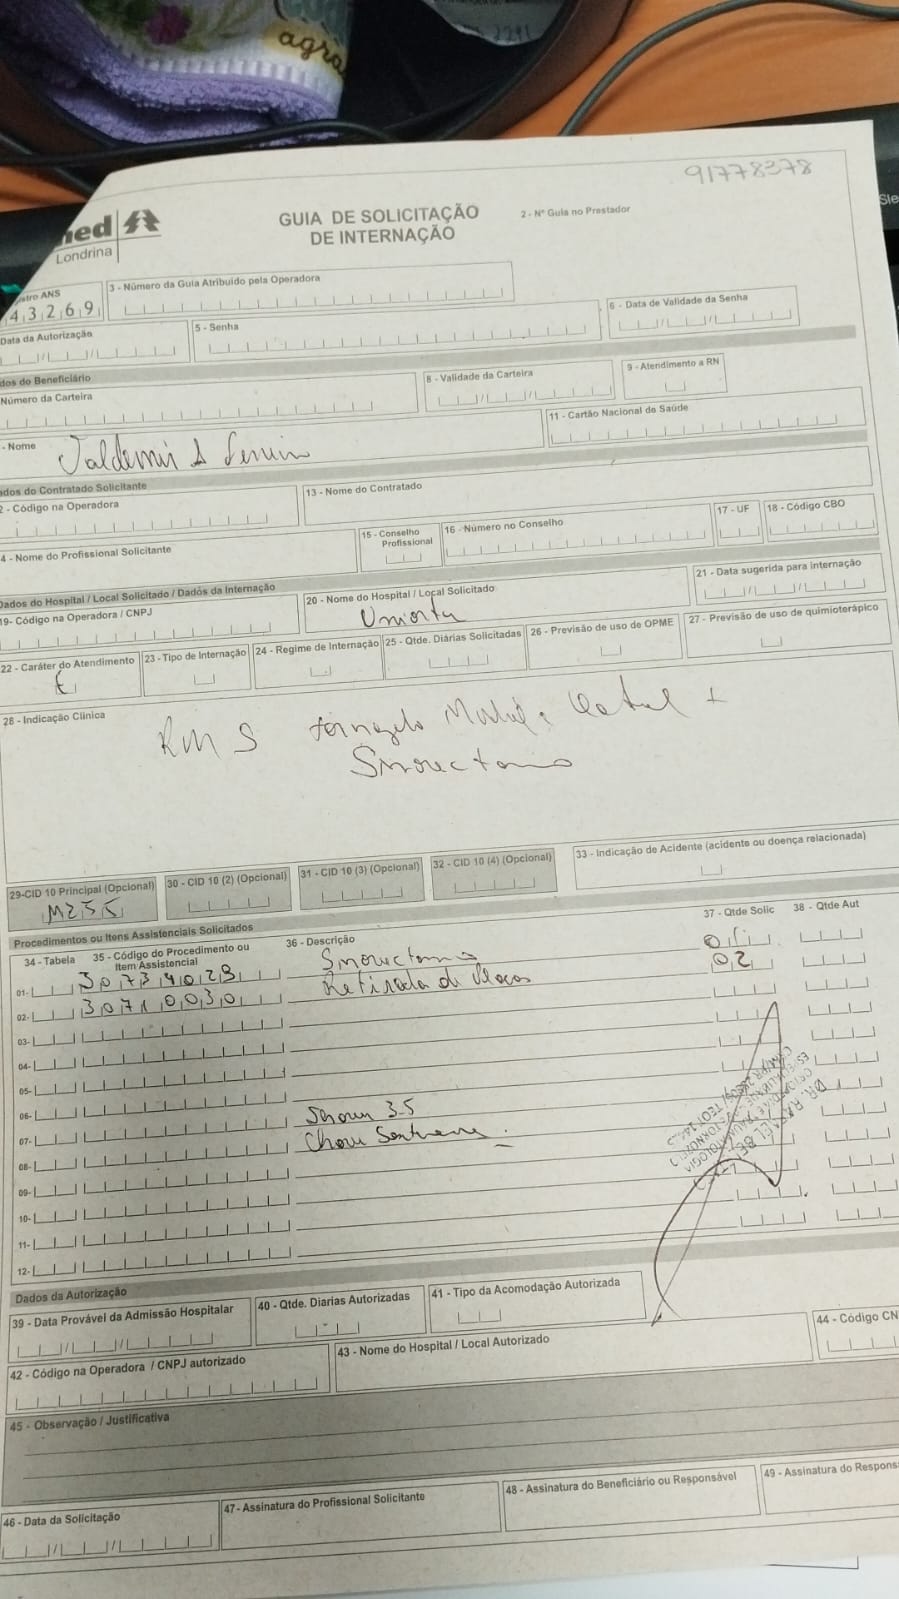 agra
2291
Sle
91778378
ned
Londrina
GUIA DE SOLICITAÇÃO
DE INTERNAÇÃO
2 - Nº Guia no Prestador
stro ANS
4 3 2 6 9
3 - Número da Guia Atribuído pela Operadora
Data da Autorização
5 - Senha
6 - Data de Validade da Senha
dos do Beneficiário
Número da Carteira
8 - Validade da Carteira
9 - Atendimento a RN
- Nome
Valdemir
11 - Cartão Nacional de Saúde
ados do Contratado Solicitante
2 - Código na Operadora
13 - Nome do Contratado
4 - Nome do Profissional Solicitante
15 - Conselho
Profissional
16 - Número no Conselho
17 - UF
18 - Código CBO
Dados do Hospital / Local Solicitado / Dados da Internação
19- Código na Operadora / CNPJ
20 - Nome do Hospital / Local Solicitado
Uniorte
21 - Data sugerida para internação
22 - Caráter do Atendimento
E
23 - Tipo de Internação
24 - Regime de Internação
25 - Qtde. Diárias Solicitadas
26 - Previsão de uso de OPME
27 - Previsão de uso de quimioterápico
28 - Indicação Clínica
RMS +
29-CID 10 Principal (Opcional)
M255
30 - CID 10 (2) (Opcional)
31 - CID 10 (3) (Opcional)
32 - CID 10 (4) (Opcional)
33 - Indicação de Acidente (acidente ou doença relacionada)
Procedimentos ou Itens Assistenciais Solicitados
34 - Tabela
35 - Código do Procedimento ou
Item Assistencial
36 - Descrição
37 - Qtde Solic
38 - Qtde Aut
01-
02- 3 0 7 1 0 0 3 0 Retirada de Placas 02
03-
04-
05-
06-
07- 3.5
08-
09-
10-
11-
12-
DR. RAFAEL
ORTOPEDIA E TRAUMATOLOGIA
Dados da Autorização
39 - Data Provável da Admissão Hospitalar
40 - Qtde. Diarias Autorizadas
41 - Tipo da Acomodação Autorizada
42 - Código na Operadora / CNPJ autorizado
43 - Nome do Hospital / Local Autorizado
44 - Código CN
45 - Observação / Justificativa
46 - Data da Solicitação
47 - Assinatura do Profissional Solicitante
48 - Assinatura do Beneficiário ou Responsável
49 - Assinatura do Respons